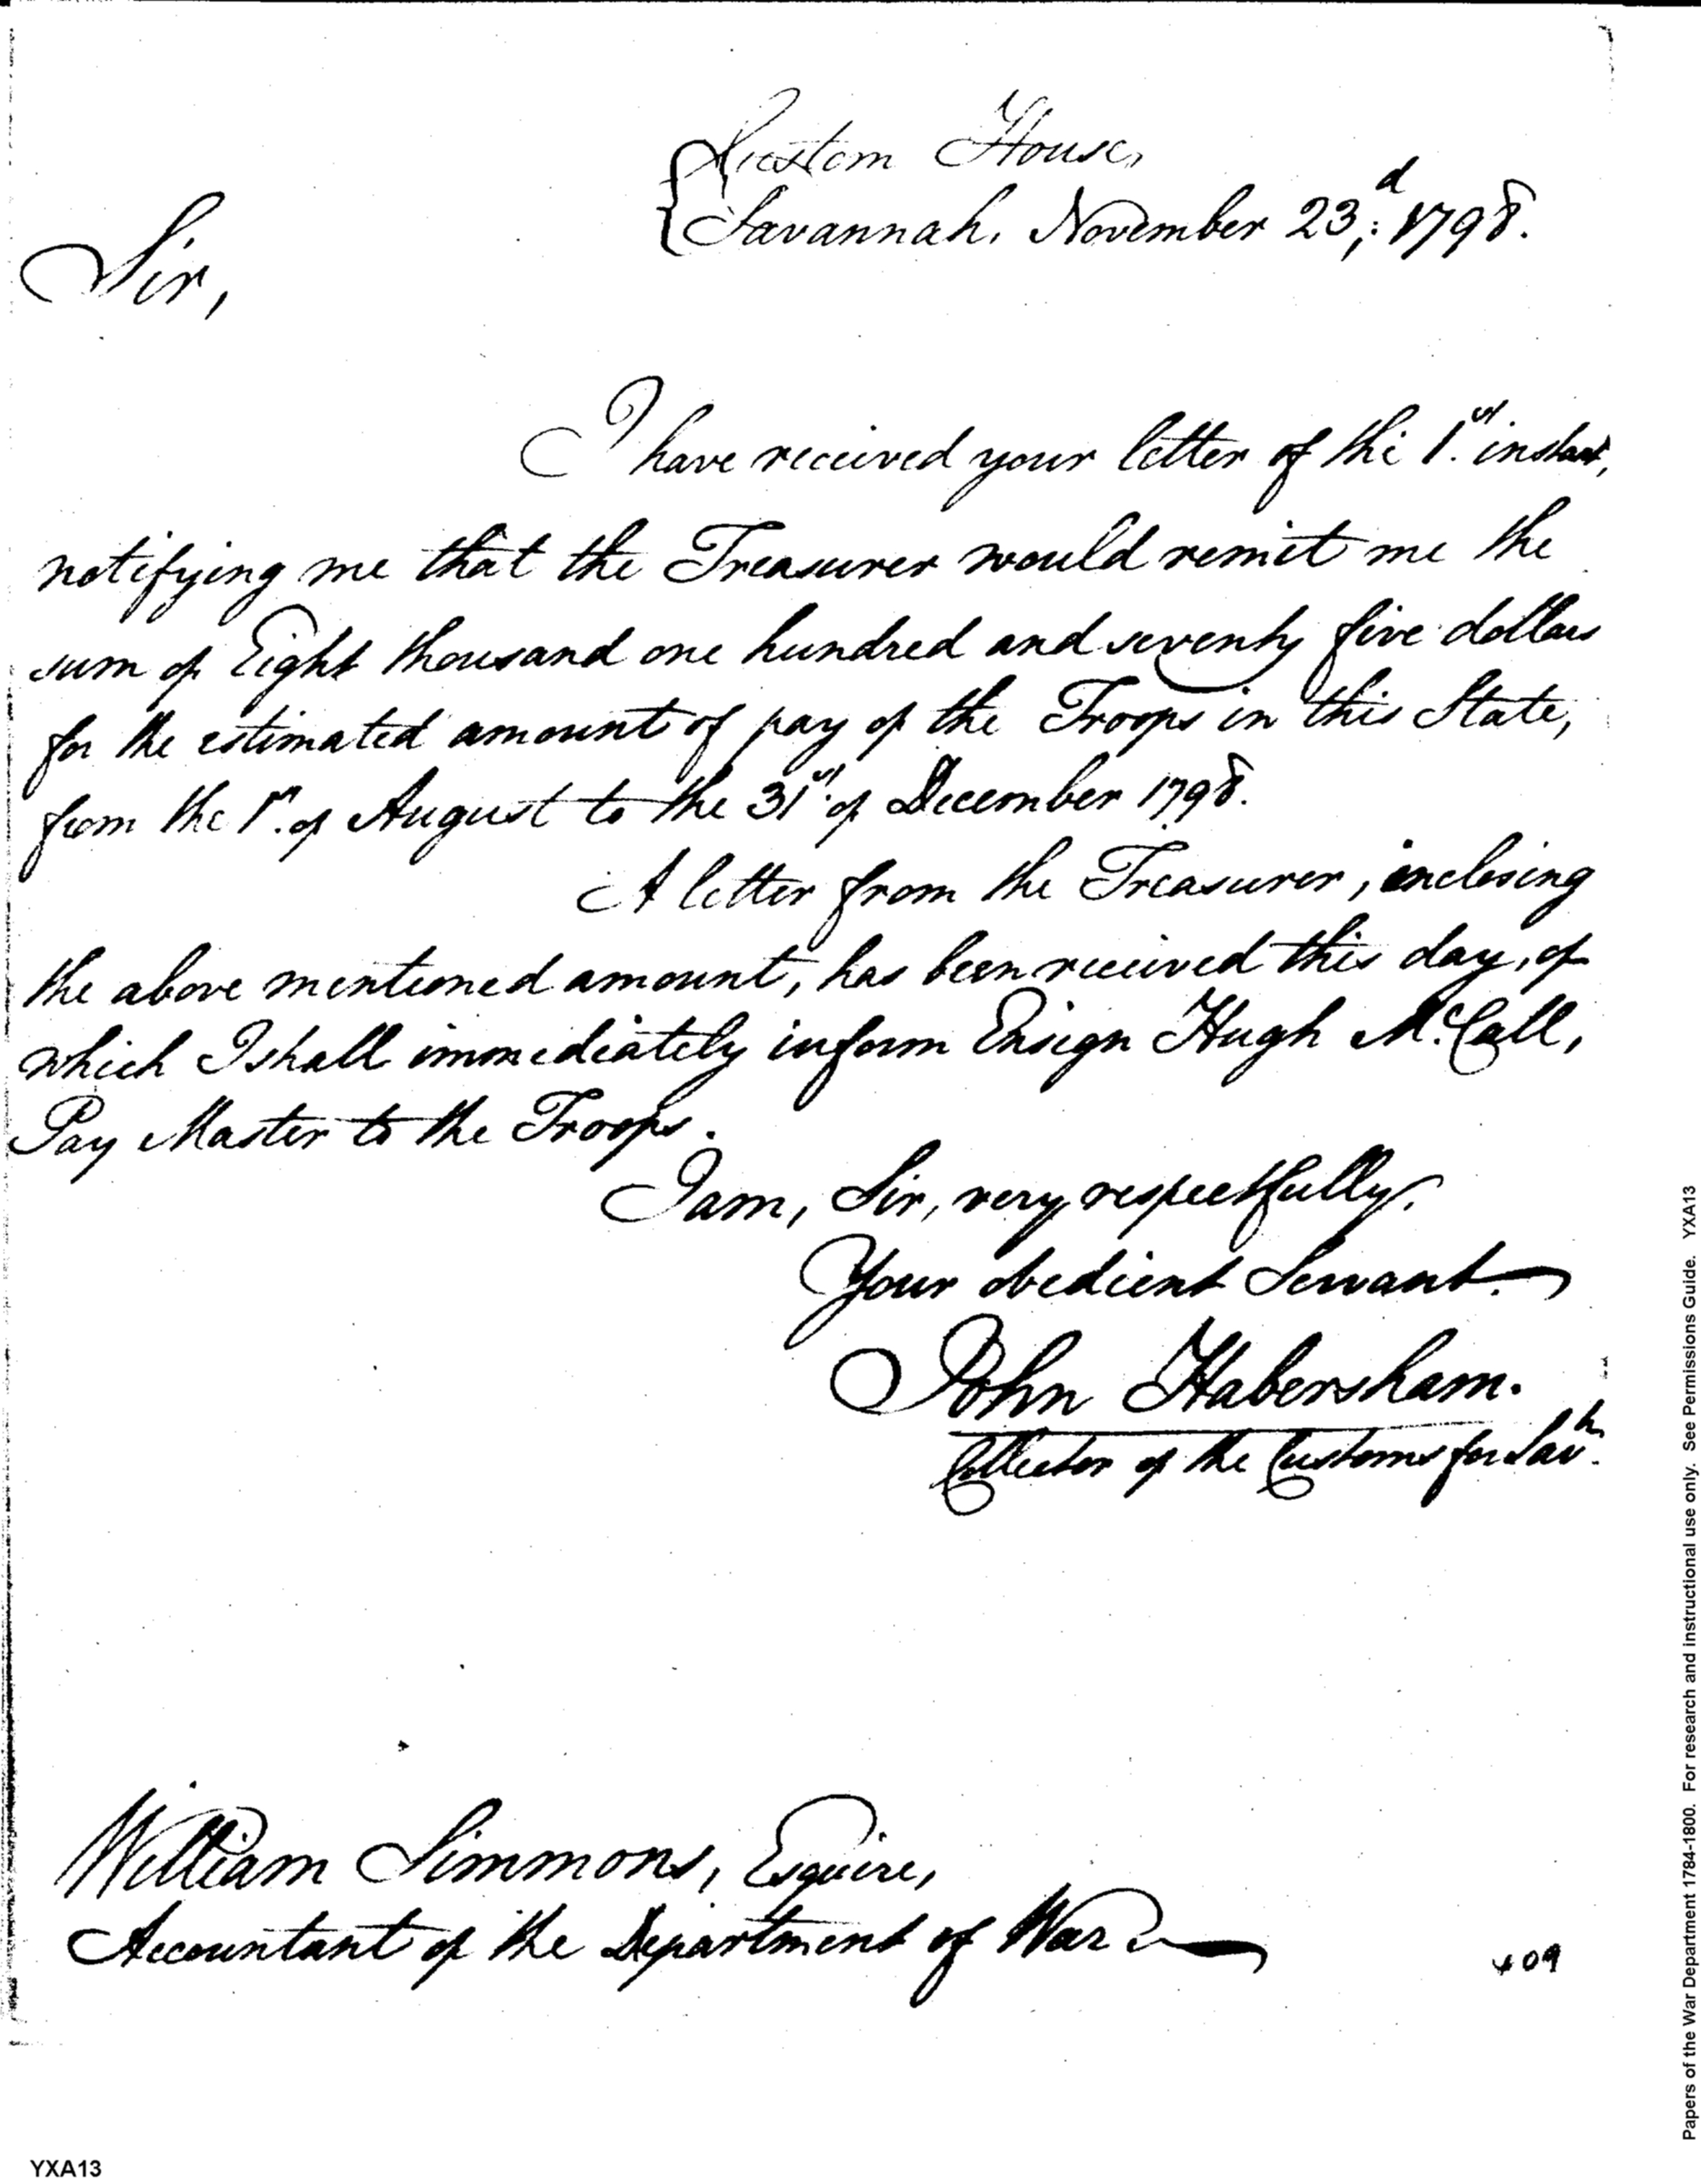 Custom House,
Savannah, November 23d; 1798.
Sir,
I have received your letter of the 1st. instant,
notifying me that the Treasurer would remit me the
sum of Eight thousand one hundred and seventy five dollars
for the estimated amount of pay of the Troops in this State,
from the 1st. of August to the 31st. of December 1798.
A letter from the Treasurer, inclosing
the above mentioned amount, has been received this day, of
which I shall immediately inform Ensign Hugh McCall,
Pay Master to the Troops.
I am, Sir, very respectfully,
Your obedient Servant.
John Habersham.
Collector of the Customs for Savh.
William Simmons, Esquire,
Accountant of the Department of War
409
YXA13
Papers of the War Department 1784-1800. For research and instructional use only. See Permissions Guide. YXA13